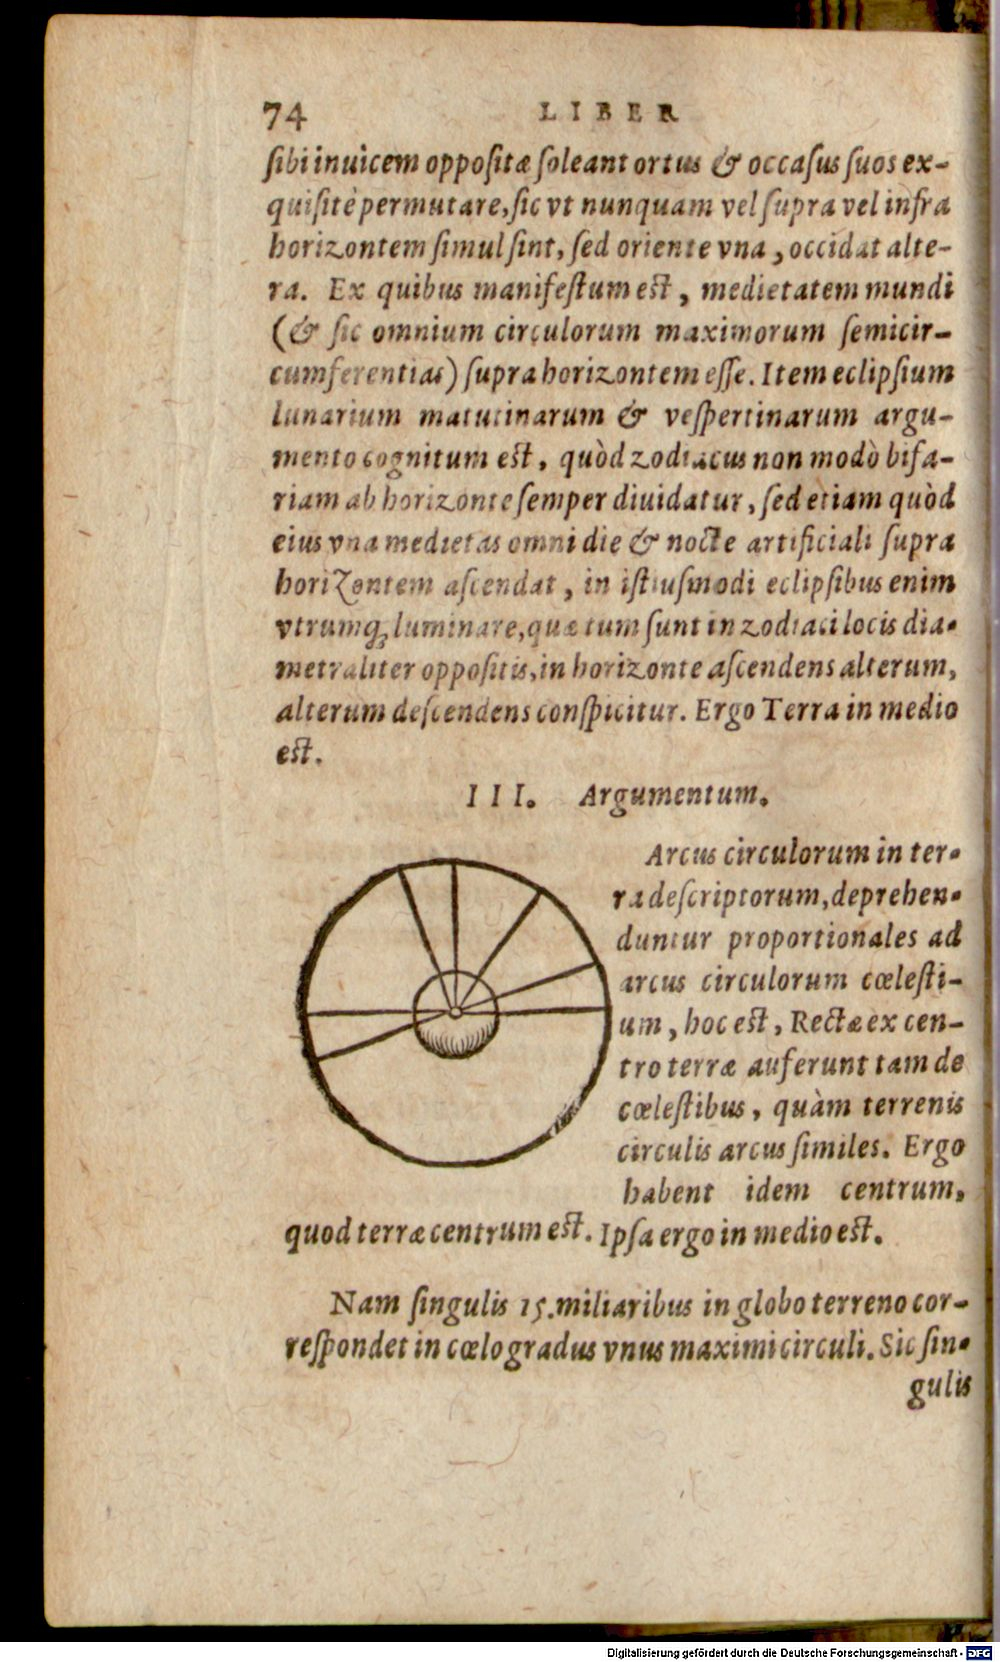 74 LIBER
ſibi inuicem oppoſitæ ſoleant ortus & occaſus ſuos ex-
quiſitè permutare, ſic vt nunquam vel ſupra vel infra
horizontem ſimul ſint, ſed oriente vna, occidat alte-
ra. Ex quibus manifeſtum eſt, medietatem mundi
(& ſic omnium circulorum maximorum ſemicir-
cumferentias) ſupra horizontem eſſe. Item eclipſium
lunarium matutinarum & veſpertinarum argu-
mento cognitum eſt, quòd zodiacus non modò bifa-
riam ab horizonte ſemper diuidatur, ſed etiam quòd
eius vna medietas omni die & nocte artificiali ſupra
horizontem aſcendat, in iſtiuſmodi eclipſibus enim
vtrumq; luminare, quæ tum ſunt in zodiaci locis dia-
metraliter oppoſitis, in horizonte aſcendens alterum,
alterum deſcendens conſpicitur. Ergo Terra in medio
eſt.
III. Argumentum.
Arcus circulorum in ter-
ra deſcriptorum, deprehen-
duntur proportionales ad
arcus circulorum cœleſti-
um, hoc eſt, Rectæ ex cen-
tro terræ auferunt tam de
cœleſtibus, quàm terrenis
circulis arcus ſimiles. Ergo
habent idem centrum,
quod terræ centrum eſt. Ipſa ergo in medio eſt.
Nam ſingulis 15. miliaribus in globo terreno cor-
reſpondet in cœlo gradus vnus maximi circuli. Sic ſin-
gulis
Digitalisierung gefördert durch die Deutsche Forschungsgemeinschaft - DFG